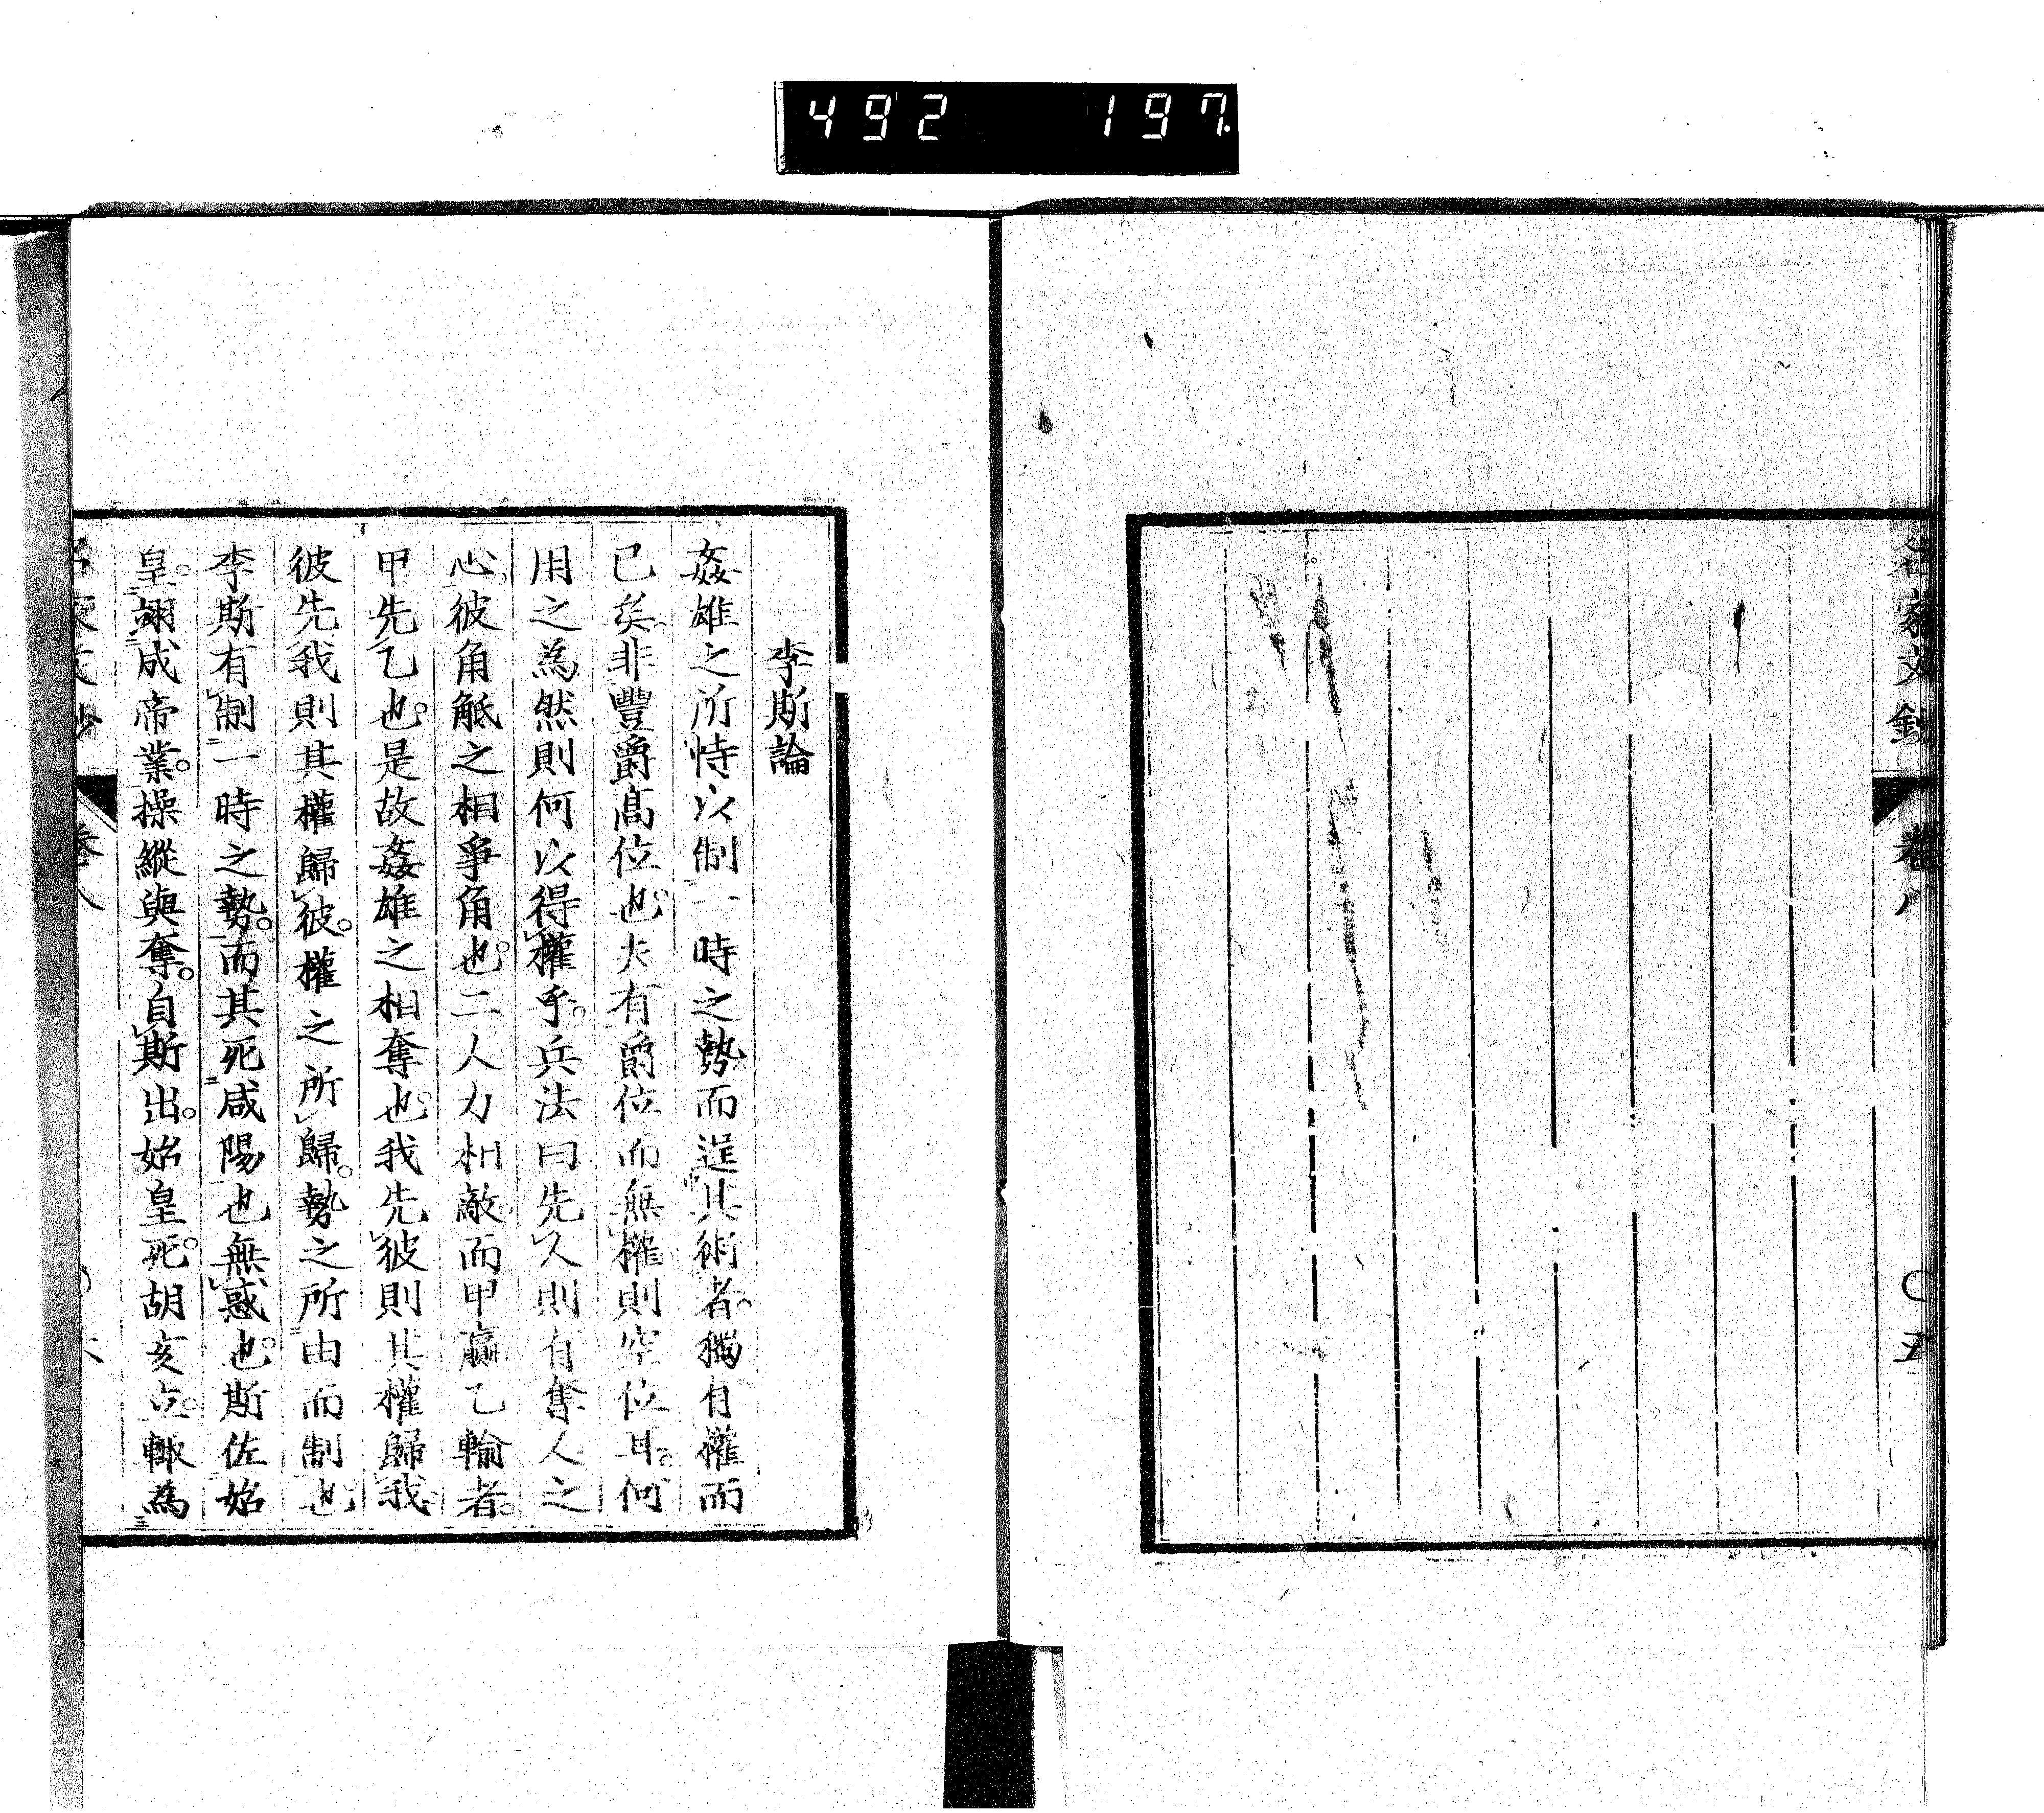 492 197
名家文鈔 卷八 〇五
李斯論
姦雄之所恃以制一時之勢而逞其術者獨有權而
已矣非豐爵高位也夫有爵位而無權則空位耳何
用之為然則何以得權乎兵法曰先人則有奪人之
心彼角觝之相爭角也二人力相敵而甲贏乙輸者
甲先乙也是故姦雄之相奪也我先彼則其權歸我
彼先我則其權歸彼權之所歸勢之所由而制也
李斯有制一時之勢而其死咸陽也無惑也斯佐始
皇翊成帝業操縱與奪自斯出始皇死胡亥立輙為
卷八